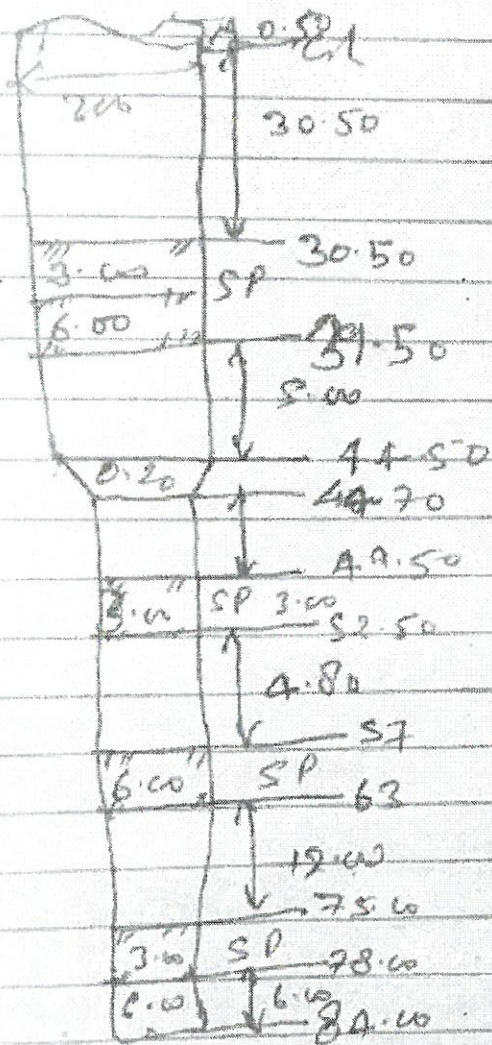 0.50
G.L
200
30.50
30.50
3.00 SP
6.00
39.50
5.00
44.50
0.20
44.70
49.50
3.00 SP 3.00
52.50
4.80
57
6.00 SP
63
12.00
75.00
3.00 SP
78.00
6.00 6.00
84.00